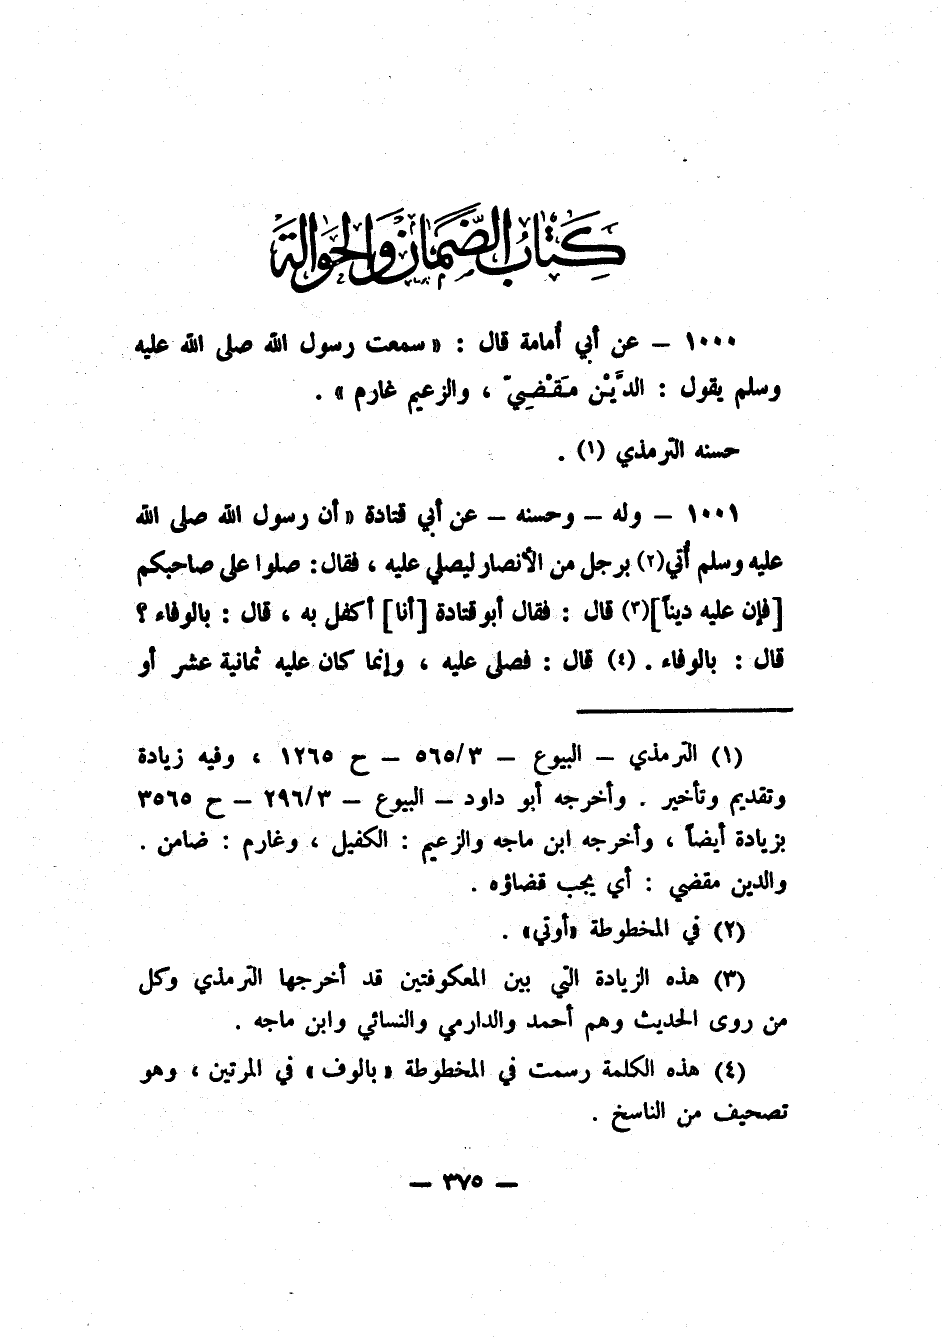 كتاب الضمان والحوالة
١٠٠٠ – عن أبي أُمامة قال : « سمعت رسول الله صلى الله عليه
وسلم يقول : الدَّيْن مَقْضِيّ ، والزعيم غارم » .
حسنه الترمذي (١) .
١٠٠١ – وله – وحسنه – عن أبي قتادة « أن رسول الله صلى الله
عليه وسلم أُتي(٢) برجل من الأنصار ليصلي عليه ، فقال : صلوا على صاحبكم
[فإن عليه ديناً](٣) قال : فقال أبو قتادة [أنا] أكفل به ، قال : بالوفاء ؟
قال : بالوفاء . (٤) قال : فصلى عليه ، وإنما كان عليه ثمانية عشر أو
(١) الترمذي – البيوع – ٥٦٥/٣ – ح ١٢٦٥ ، وفيه زيادة
وتقديم وتأخير . وأخرجه أبو داود – البيوع – ٢٩٦/٣ – ح ٣٥٦٥
بزيادة أيضاً ، وأخرجه ابن ماجه والزعيم : الكفيل ، وغارم : ضامن .
والدين مقضي : أي يجب قضاؤه .
(٢) في المخطوطة «أوتي» .
(٣) هذه الزيادة التي بين المعكوفتين قد أخرجها الترمذي وكل
من روى الحديث وهم أحمد والدارمي والنسائي وابن ماجه .
(٤) هذه الكلمة رسمت في المخطوطة « بالوف » في المرتين ، وهو
تصحيف من الناسخ .
– ٣٧٥ –